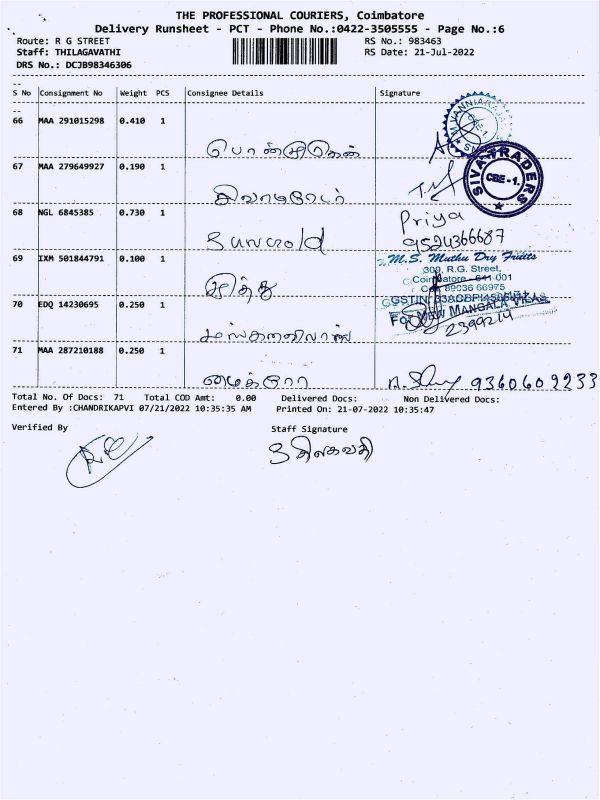 THE PROFESSIONAL COURIERS, Coimbatore
Delivery Runsheet - PCT - Phone No.:0422-3505555 - Page No.:6
Route: R G STREET RS No.: 983463
Staff: THILAGAVATHI RS Date: 21-Jul-2022
DRS No.: DCJB98346306
S No Consignment No Weight PCS Consignee Details Signature
66 MAA 291015298 0.410 1
67 MAA 279649927 0.190 1
SIVA TRADERS
CBE - 1.
68 NGL 6845385 0.730 1 Priya
9524366687
69 IXM 501844791 0.100 1
M.S. Muthu Dry Fruits
309, R.G. Street,
Coimbatore - 641 001
Cell 89036 66975
முத்து
70 EDQ 14230695 0.250 1
For NEW MANGALA VILAS
71 MAA 287210188 0.250 1
மைக்ரோ 9360609233
Total No. Of Docs: 71 Total COD Amt: 0.00 Delivered Docs: Non Delivered Docs:
Entered By :CHANDRIKAPVI 07/21/2022 10:35:35 AM Printed On: 21-07-2022 10:35:47
Verified By Staff Signature
திலகவதி